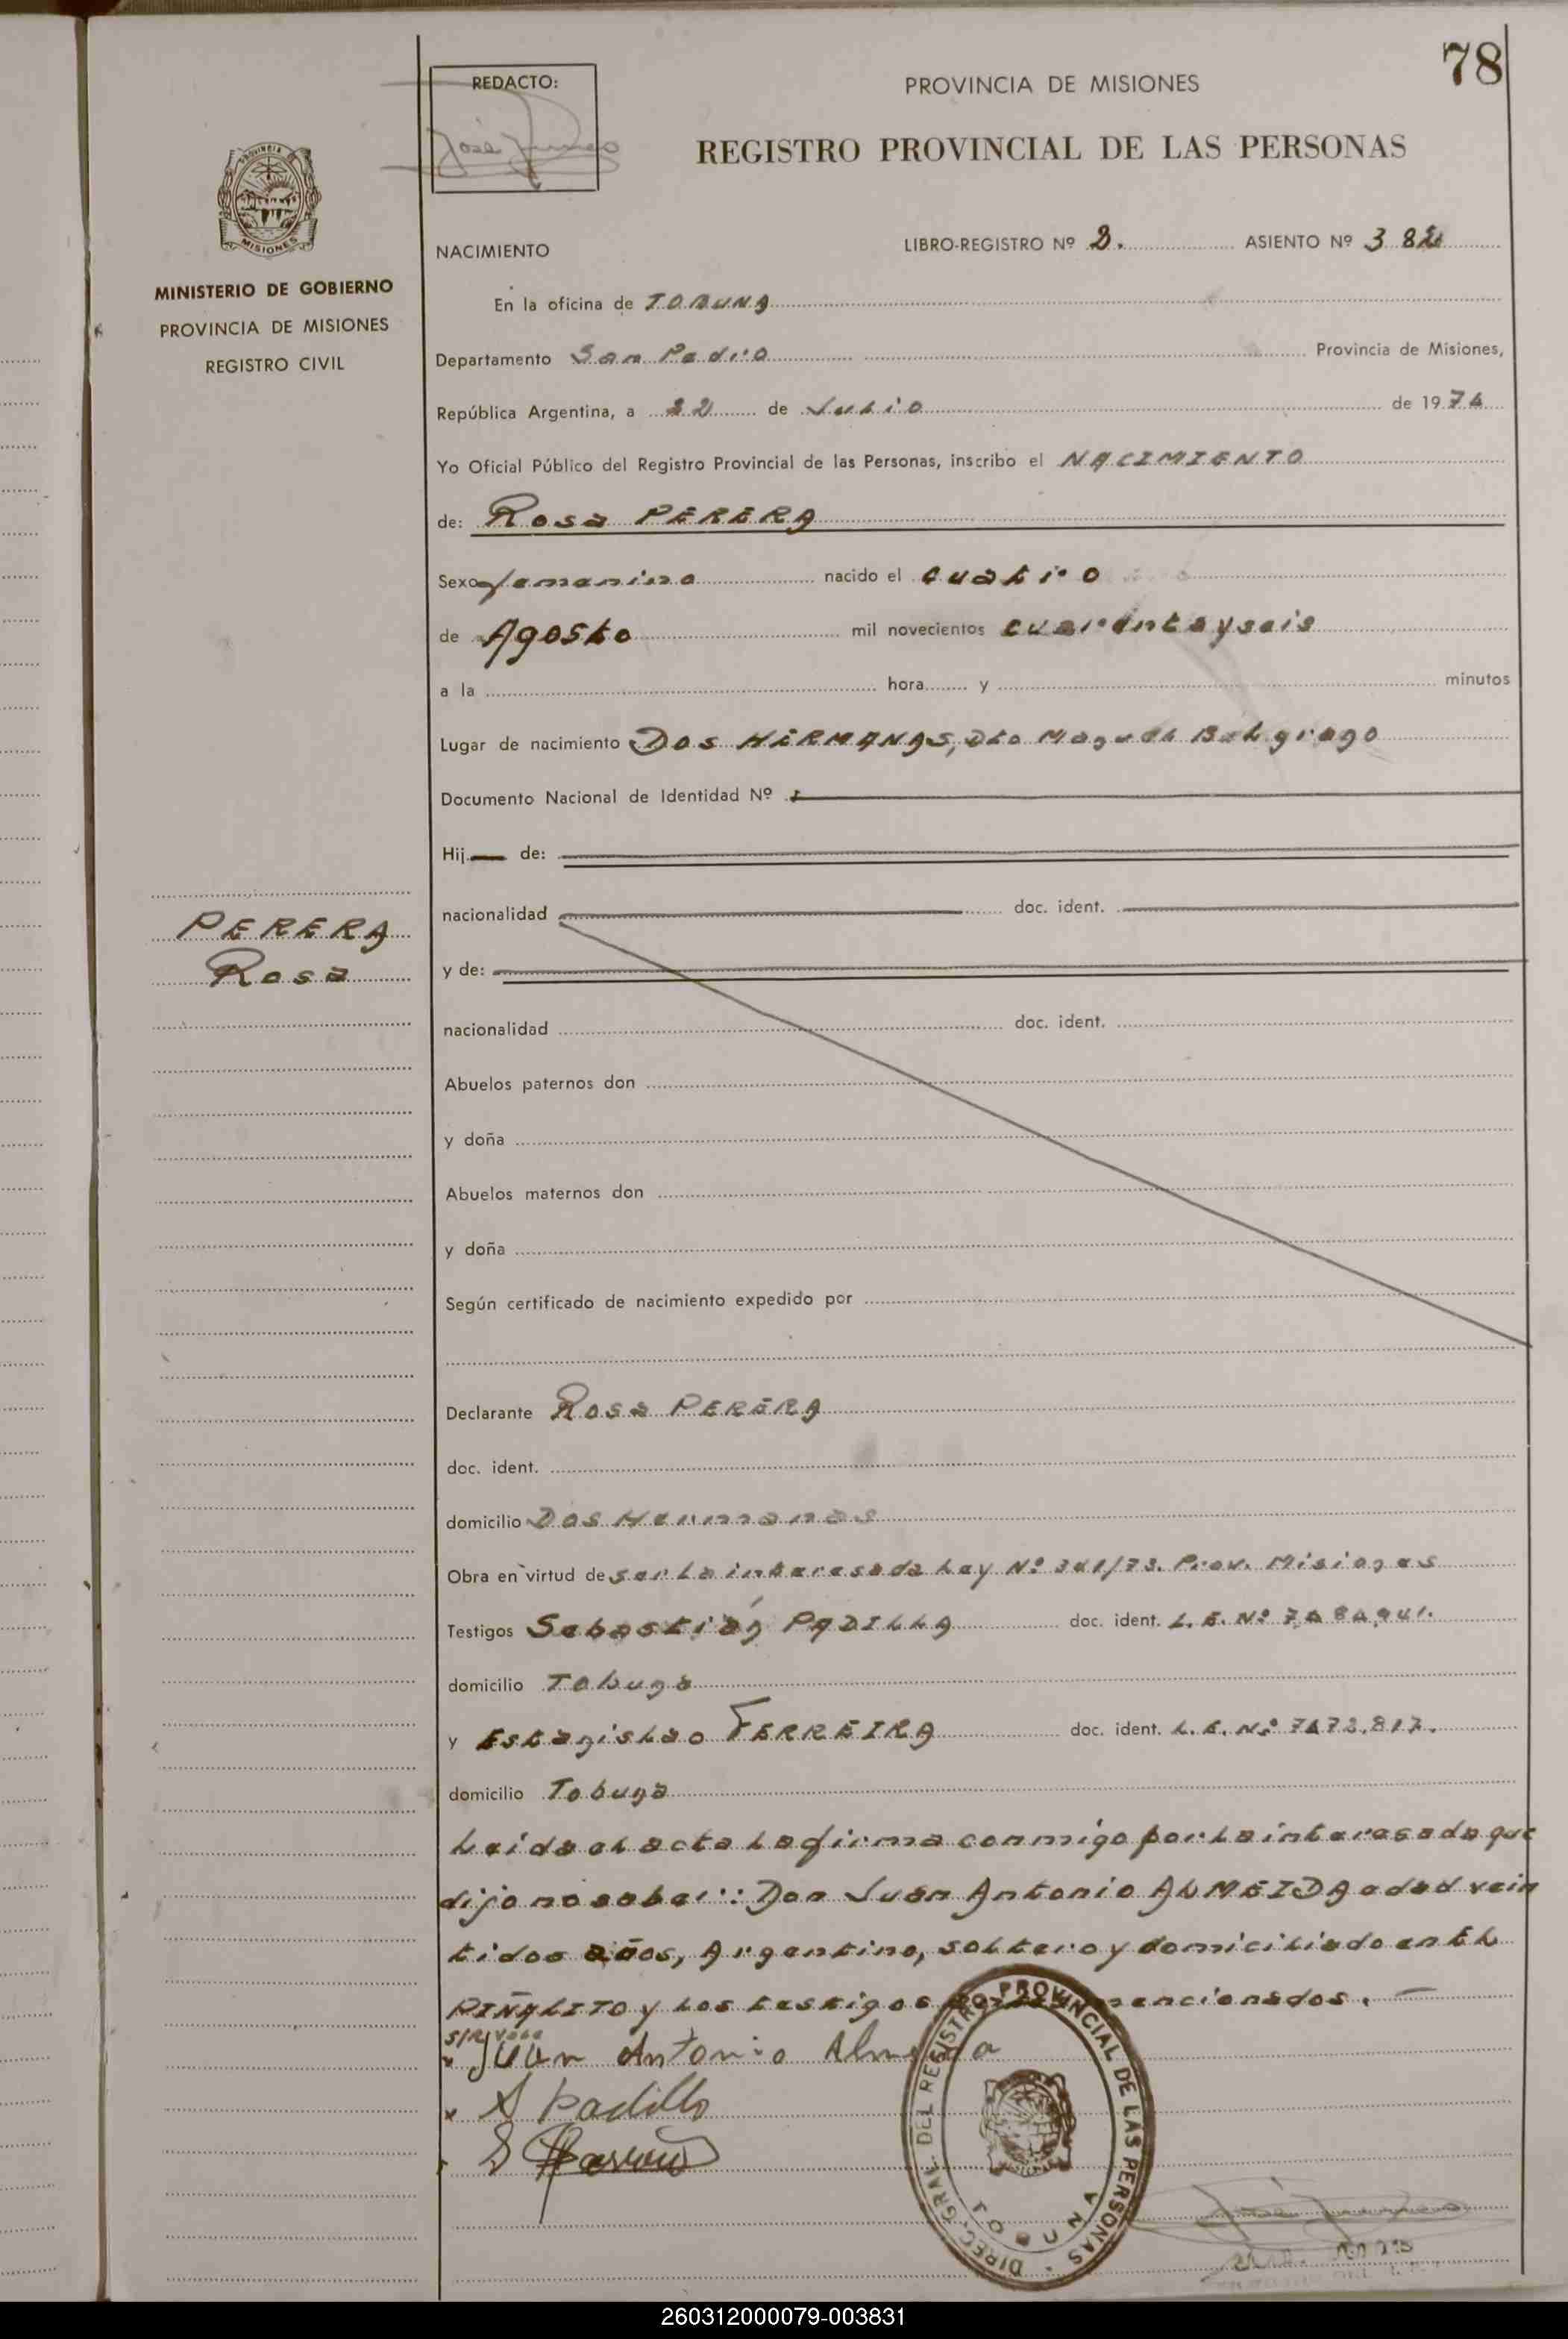 78
REDACTO:
PROVINCIA DE MISIONES
REGISTRO PROVINCIAL DE LAS PERSONAS
PROVINCIA DE
MISIONES
MINISTERIO DE GOBIERNO
PROVINCIA DE MISIONES
REGISTRO CIVIL
NACIMIENTO
LIBRO-REGISTRO Nº 2. ASIENTO Nº 382
En la oficina de TOBUNA
Departamento San Pedro Provincia de Misiones,
República Argentina, a 22 de Julio de 1974
Yo Oficial Público del Registro Provincial de las Personas, inscribo el NACIMIENTO
de: Rosa PERERA
Sexo femenino nacido el cuatro
de Agosto mil novecientos cuarenta y seis
a la hora y minutos
Lugar de nacimiento DOS HERMANAS, Dto Manuel Belgrano
Documento Nacional de Identidad Nº
Hij de:
nacionalidad doc. ident.
PERERA
Rosa
y de:
nacionalidad doc. ident.
Abuelos paternos don
y doña
Abuelos maternos don
y doña
Según certificado de nacimiento expedido por
Declarante Rosa PERERA
doc. ident.
domicilio Dos Hermanas
Obra en virtud de ser la interesada Ley Nº 341/73. Prov. Misiones
Testigos Sebastián PADILLA doc. ident. L. E. Nº 7.484.941.
domicilio Tobuna
y Estanislao FERREIRA doc. ident. L. E. Nº 7473.817.
domicilio Tobuna
Leida el acta la firma conmigo por la interesada que
dijo no saber: Don Juan Antonio ALMEIDA edad vein
tidos años, Argentino, soltero y domiciliado en EL
PIÑALITO y los testigos mencionados.
S/R Vale
x Juan Antonio Almeida
x S Padilla
DIREC. GRAL. DEL REGISTRO PROVINCIAL DE LAS PERSONAS
TOBUNA
260312000079-003831